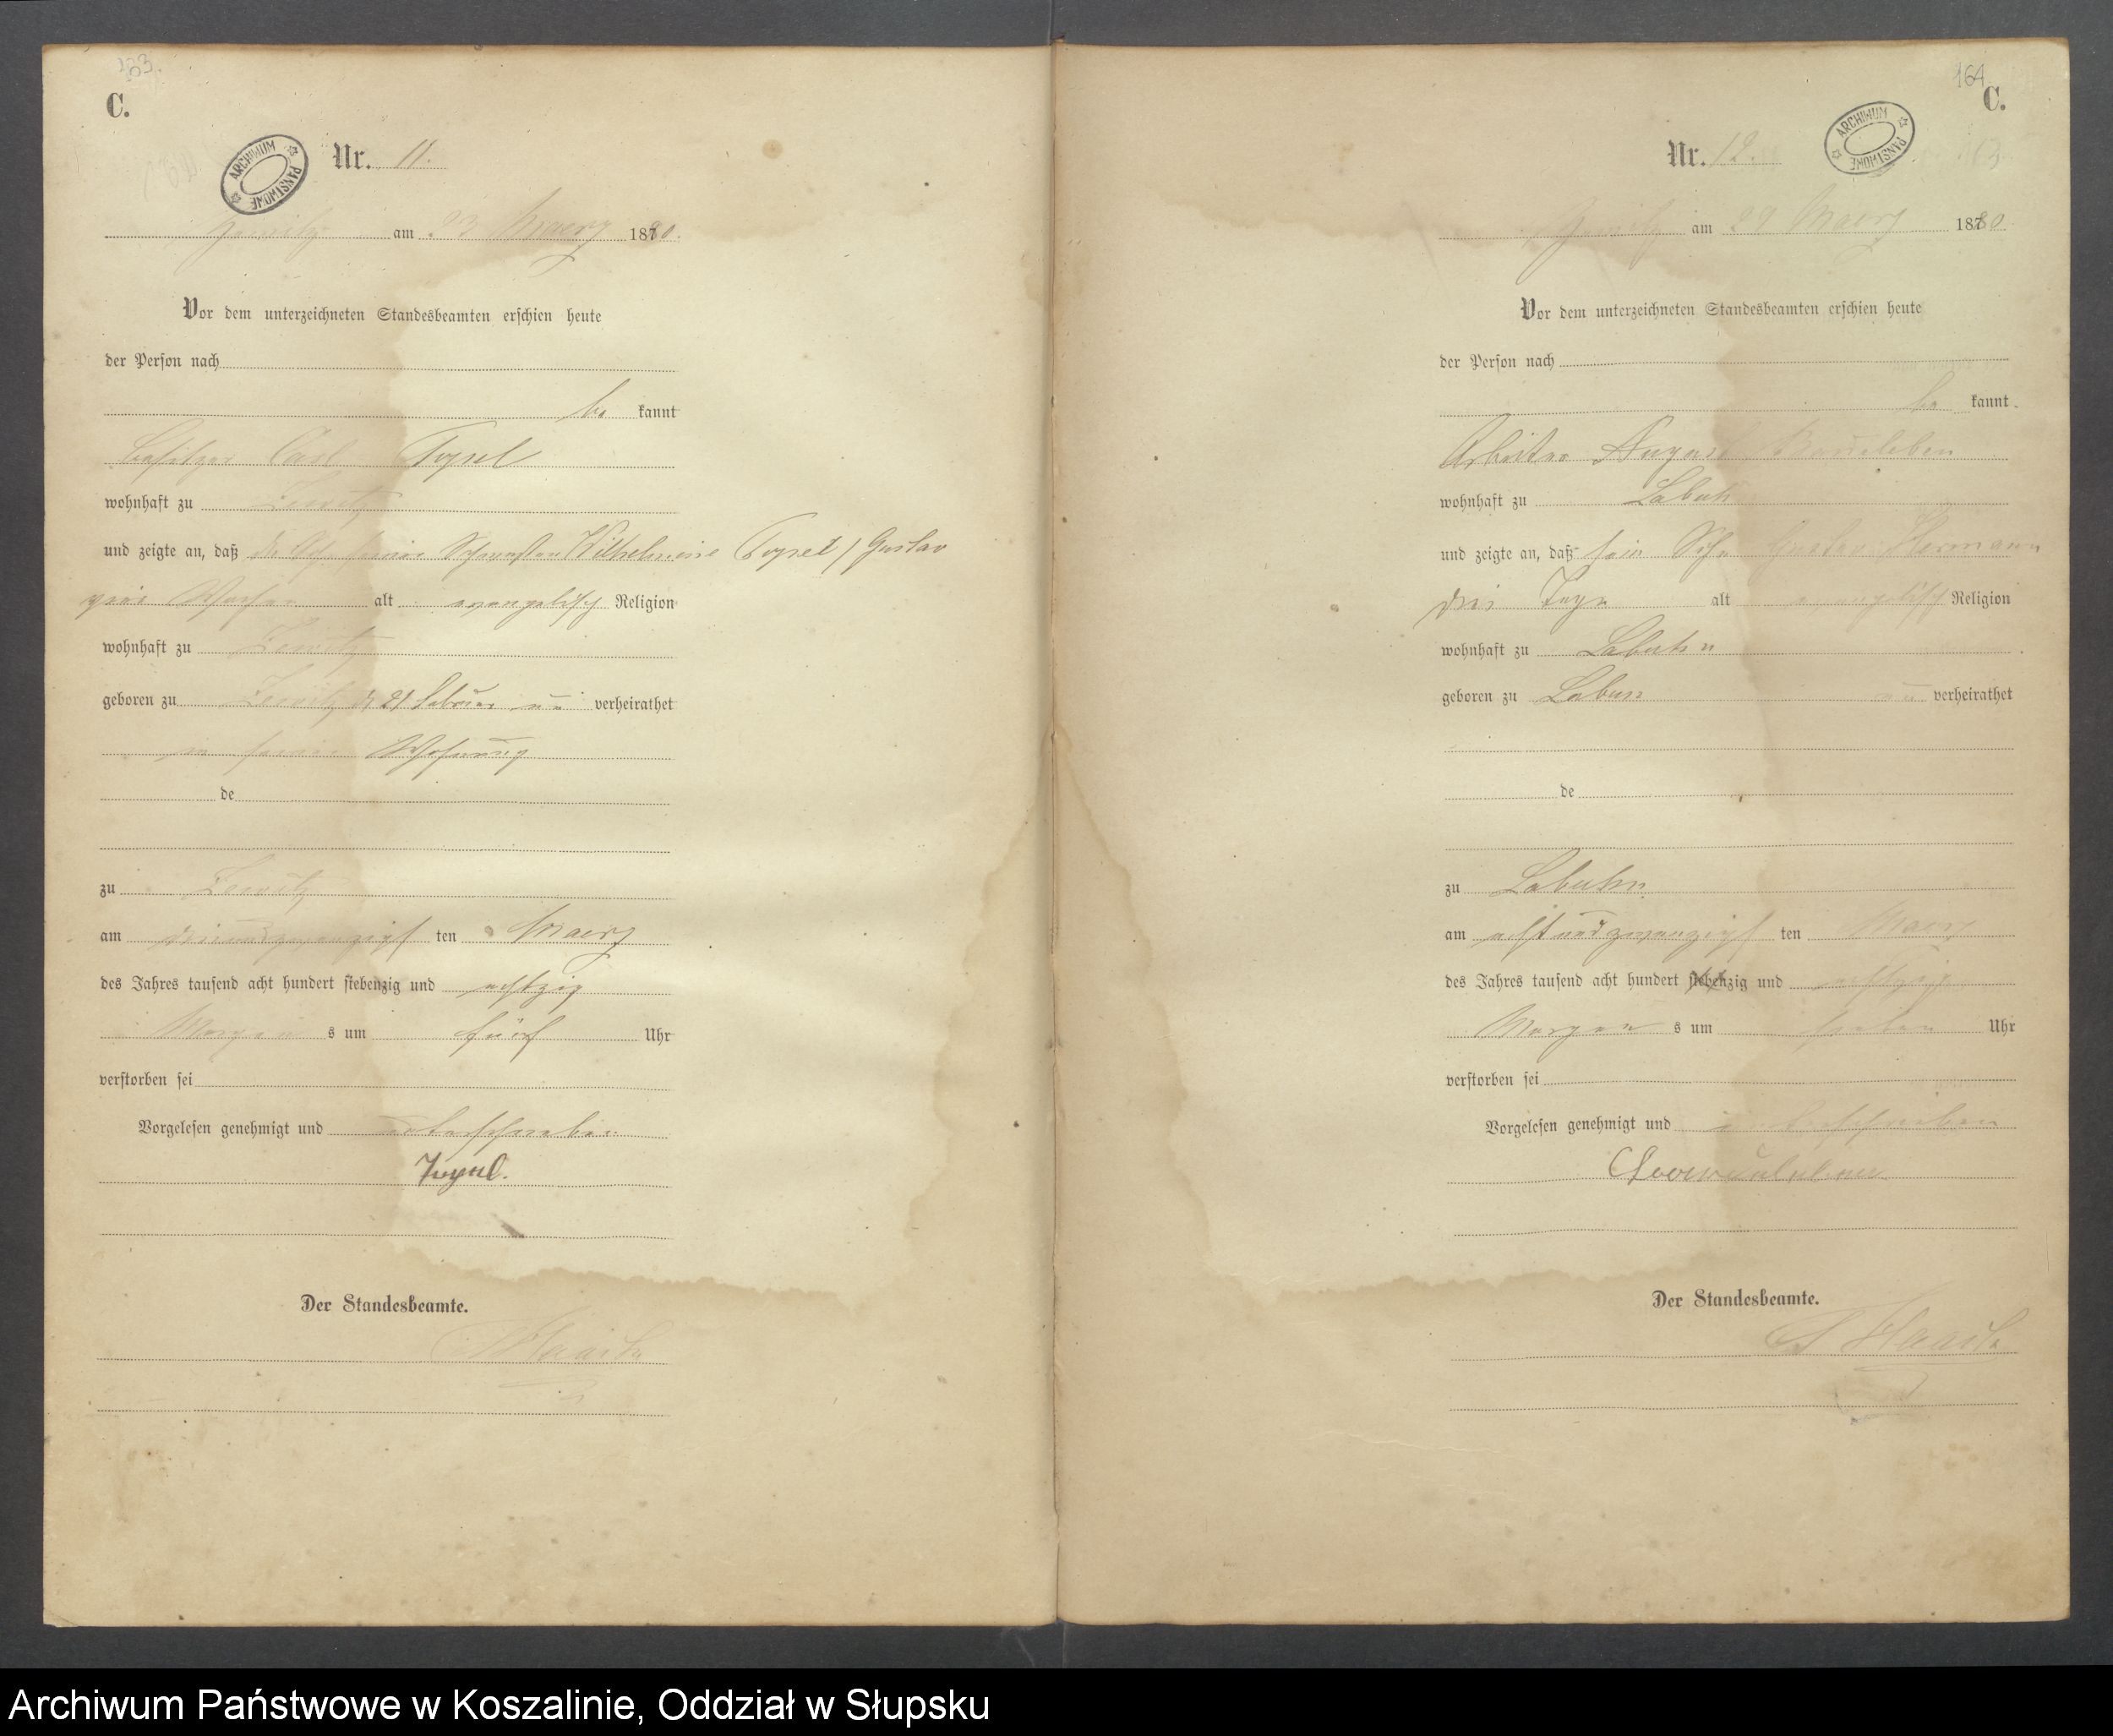 163.
C.
ARCHIWUM PAŃSTWOWE
Nr. 11.
am 23 Maerz 1880.
Vor dem unterzeichneten Standesbeamten erschien heute
der Person nach
be kannt
Besitzer Carl Topel
wohnhaft zu
und zeigte an, daß Schwester Wilhelmine Topel / Gustav
vier Wochen alt evangelisch Religion
wohnhaft zu
geboren zu 21 Februar un verheirathet
in seiner Wohnung
de
zu
am dreiundzwanzigst ten Maerz
des Jahres tausend acht hundert siebenzig und achtzig
Morgen s um fünf Uhr
verstorben sei
Vorgelesen genehmigt und unterschrieben
Topel.
Der Standesbeamte.
164
C.
ARCHIWUM PAŃSTWOWE
Nr. 12.
am 29 Maerz 1880
Vor dem unterzeichneten Standesbeamten erschien heute
der Person nach
be kannt
Arbeiter August
wohnhaft zu Labuhn
und zeigte an, daß sein Sohn Gustav Hermann
drei Tage alt evanglisch Religion
wohnhaft zu Labuhn
geboren zu Labun un verheirathet
de
zu Labuhn
am achtundzwanzigst ten Maerz
des Jahres tausend acht hundert siebenzig und achtzig
Morgen s um sieben Uhr
verstorben sei
Vorgelesen genehmigt und unterschrieben
Der Standesbeamte.
Archiwum Państwowe w Koszalinie, Oddział w Słupsku